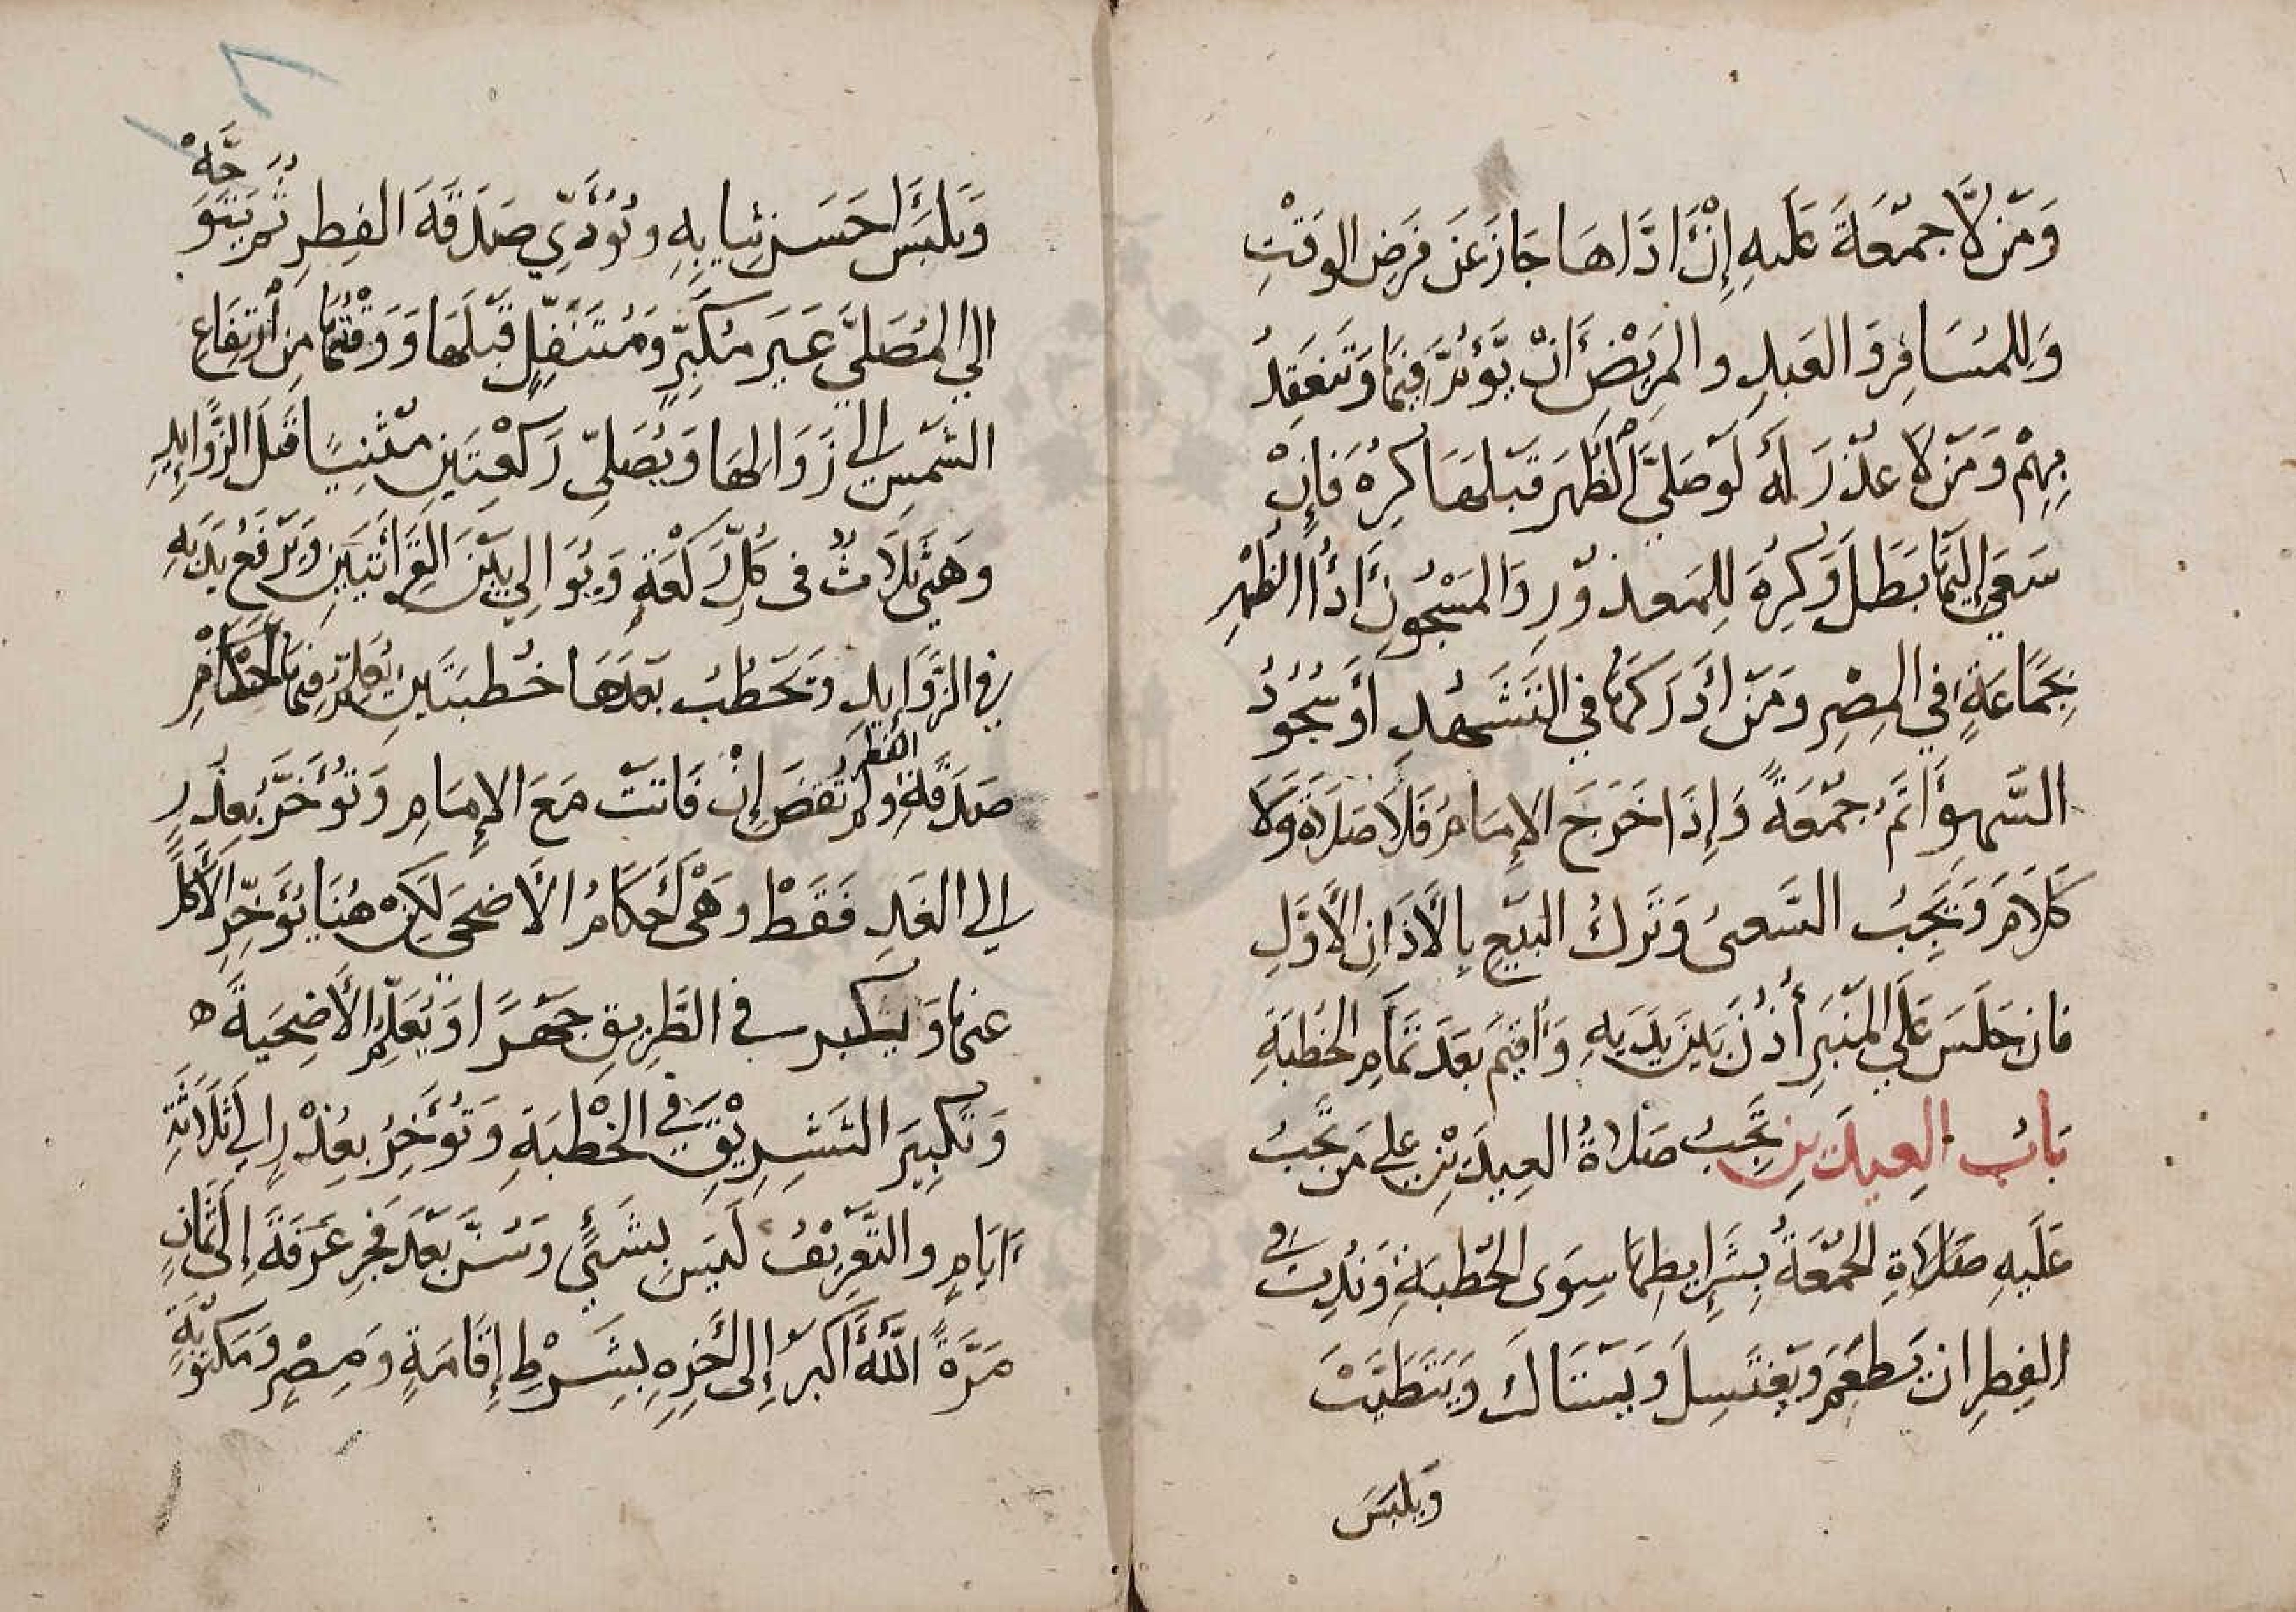 وَمَنْ لَّا جُمُعَةَ عَلَيهِ إِنْ أَدَّاهَا جَازَ عَنْ فَرَضِ الوَقْتِ
وَلِلمُسَافِرِ وَ العَبدِ وَ المَرِيْضِ أَنْ يَّؤُمَّ فِيهَا وَتَنعَقِدُ
بِهِمْ وَمَنْ لَا عُذْرَ لَهُ لَوْ صَلَّى الظُّهْرَ قَبْلَهَا كُرِهَ فَإِنْ
سَعَى إِلَيْهَا بَطَلَ وَكُرِهَ لِلمَعذُوْرِ وَالمَسْجُونِ أَدَاُ الظُهْرِ
بِجَمَاعَةٍ فِي المِصْرِ وَمَنْ أَدْرَكَهَا فِي التَشَهُدِ أَوْ سُجُوْدِ
السَّهوِ أَتَمَّ جُمُعَةً وَإِذَا خَرَجَ الإِمَامُ فَلَا صَلَاةَ وَلَا
كَلَامَ وَيَجِبُ السَّعىُ وَتَركُ البَيْعِ بِالأَذَانِ الأَوَّلِ
فان جَلَسَ عَلَى المِنْبَرِ أُذِّنَ بَيْنَ يَدَيهِ وَأُقِيْمَ بَعدَ تَمَامِ الخُطبَةِ
بَابُ العِيدَينِ تَجِبُ صَلَاةُ العِيدَيْنِ عَلَى مَن تَجِبُ
عَلَيهِ صَلَاةِ الجُمْعَةُ بِشَرَإِيطِهَا سِوَى الخُطبَةِ وَنُدِبَ فى
الفِطِرِ ان يَطعَمَ وَيَغتَسِلَ وَيَستَاكَ وَيَتَطَيَّبَ
وَيلبَسَ
وَيَلبَسَ أَحْسَنَ ثِيَابِهِ وَ يُؤَدِّي صَدَقَةَ الفِطرِ ثُمَّ يَتَوَجَّهُ
الى المُصَلَّى غَيرَ مُكَبِّرٍ وَمُتَنَفِّلٍ قَبْلَهَا وَوَقْتُهَا مِن أرْتِفَاعِ
الشَمْسِ إلى زَوَالِهَا وَيُصَلِّى رَكعَتَينِ مُثْنِيًا قَبلَ الزَّوَإيدِ
وَهِيَ ثَلَاثٌ فى كُلِّ رَكعَةٍ وَيُوَالِي بَيْنَ القِرَأتَيْنِ وَيَرفَعُ يَدَيهِ
في الزَّوَإيدِ وَيَخطُبُ بَعدَهَا خُطبَتَينِ يُعَلِّمُ فِيهَا أَحْكَامَ
صَدَقَةِ الفطر وَلَم تُقضَ إِنْ فَاتَتْ مَعَ الإِمَامِ وَتُؤَخَّرُ بِعُذْرٍ
إلى الغَدِ فَقَطْ وَهِىَ أَحكَامُ الأَضحَى لَكِنْ هُنَا يُؤَخِّرُ الأَكْلَ
عنهَا وَيُكَبِر في الطَّرِيقِ جَهْرًا وَيُعَلِّمُ الأُضحِيَةَ ه
وَتَكبِيرَ التَشرِيْقِ فِي الخُطبَةِ وَتُؤَخَّرُ بِعُذْرٍ إِلى ثَلَاثَةِ
أَيَامٍ وَالتَّعرِيْفُ لَيْسَ بِشَيْءٍ وَسُنَّ بَعْدَ فَجْرِ عَرَفَةَ إِلَى ثَمَانٍ
مَرَّةً اللّٰهُ أَكبَرُ إِلَى أَخِرِهِ بِشَرْطِ إِقَامَةٍ وَمِصْرٍ وَمَكتُوبَةٍ